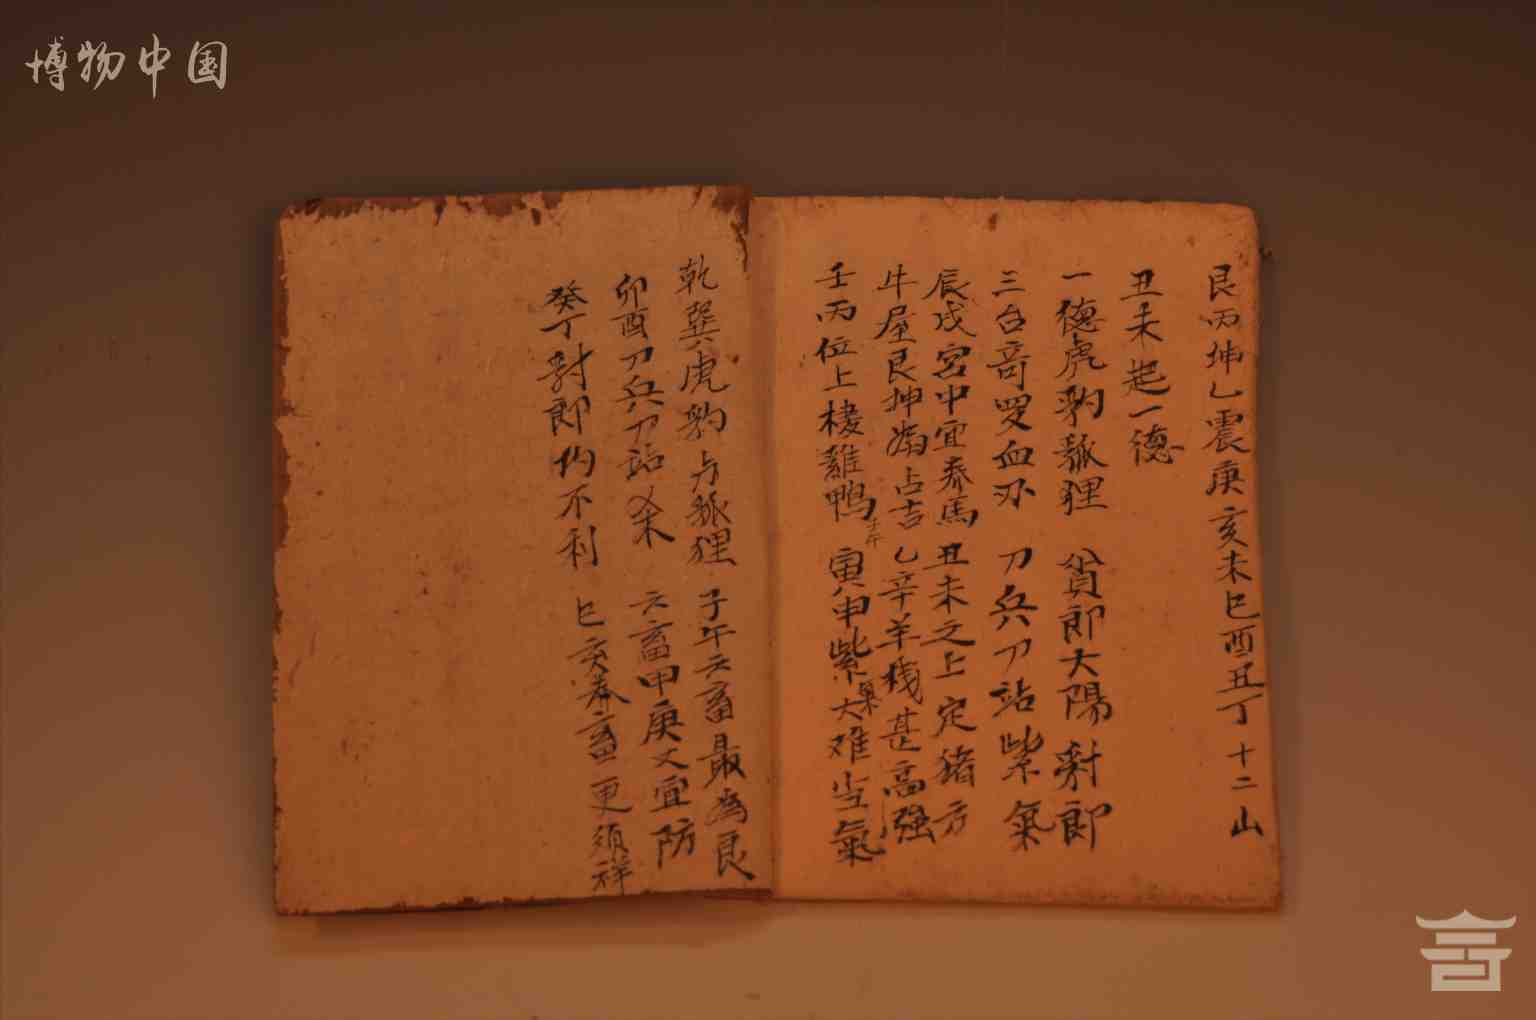 博物中国
艮丙坤乙震庚亥未巳酉丑丁十二山
丑未起一德
一德虎豹狐狸 貧郎太陽豺郎
三台奇罗血刃 刀兵刀站紫氣
辰戌宮中宜养馬 丑未之上定猪方
牛屋艮坤為占吉 乙辛羊栈甚高強
壬丙位上棲雞鴨 寅申紫大难当氣
壬午
果
乾巽虎豹与狐狸 子午六畜最為良
卯酉刀兵刀站杀 六畜甲庚丈宜防
癸丁豺郎灼不利 巳亥养畜更須祥